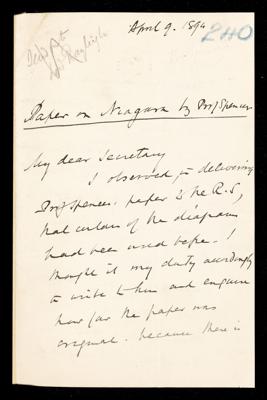 April 9. 1894
240
Ld Rayleigh
Paper on Niagara by Prof Spencer
My dear Secretary
I observed in delivering
Prof Spencer's paper to the R.S,
that certain of the diagrams
had been used before. I
thought it my duty accordingly
to write to him and enquire
how far the paper was
original. because there is